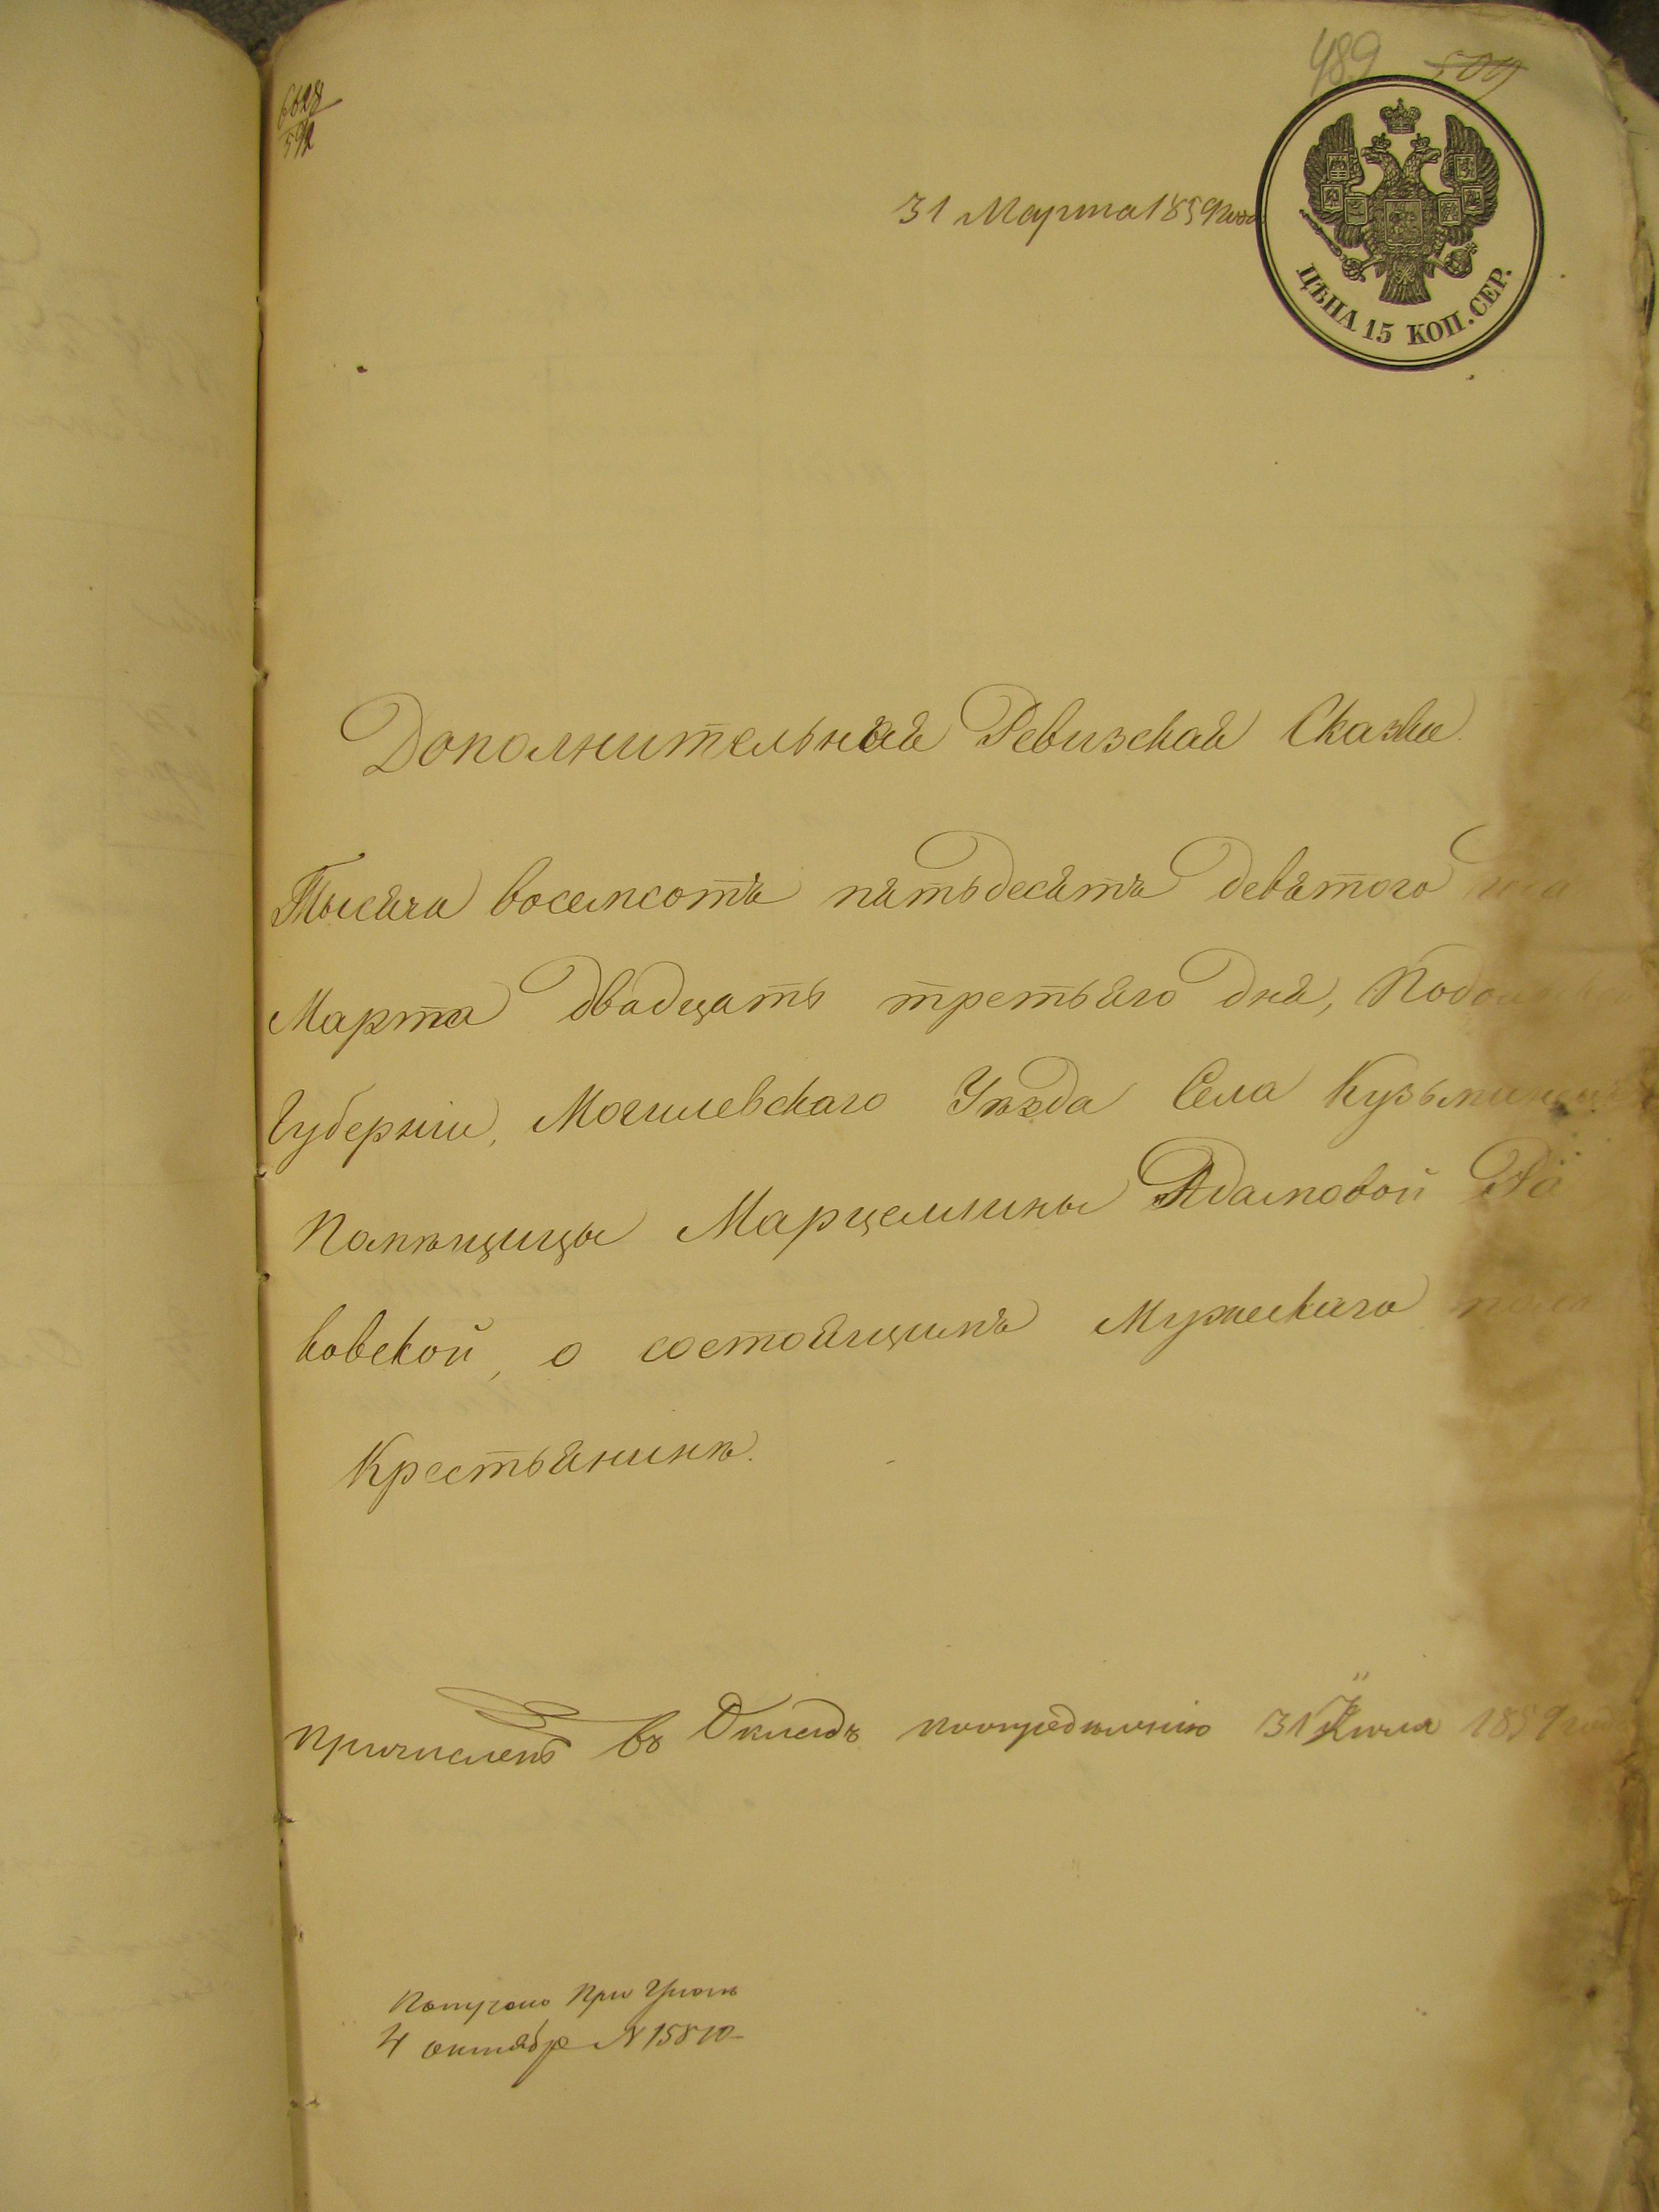 489 509
6628
592
31 Марта 1859 года
ЦѢНА 15 КОП. СЕР.
Дополнительная Ревизская Сказка.
Тысяча восемсотъ пятьдесятъ девятого года
Марта двадцать третьяго дня, Подольской
Губерніи, Могилевскаго Уѣзда Села Кузьминецъ
Помѣщицы Марцелины Адамовой
ковской, о состоящимъ Мужескаго пола
Крестьянинѣ.
Причисленъ въ Окладъ по опредѣленію 31 Іюля 1859 года
При
4 октября N 15810